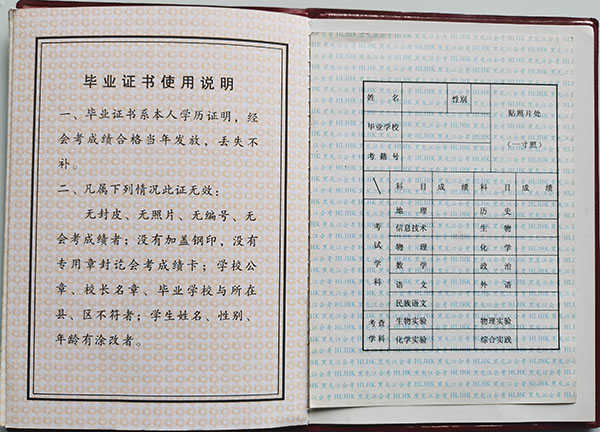 毕业证书使用说明
一、毕业证书系本人学历证明，经
会考成绩合格当年发放，丢失不
补。
二、凡属下列情况此证无效：
无封皮、无照片、无编号、无
会考成绩者；没有加盖钢印，没有
专用章封讫会考成绩卡；学校公
章、校长名章、毕业学校与所在
县、区不符者；学生姓名、性别、
年龄有涂改者。
姓 名 性别
贴照片处
(一寸照)
毕业学校
考籍号
科 目 成 绩 科 目 成 绩
考试学科
地 理 历 史
信息技术 生 物
物 理 化 学
数 学 政 治
语 文 外 语
民族语文
考查学科
生物实验 物理实验
化学实验 综合实践
HLJHK 黑龙江会考